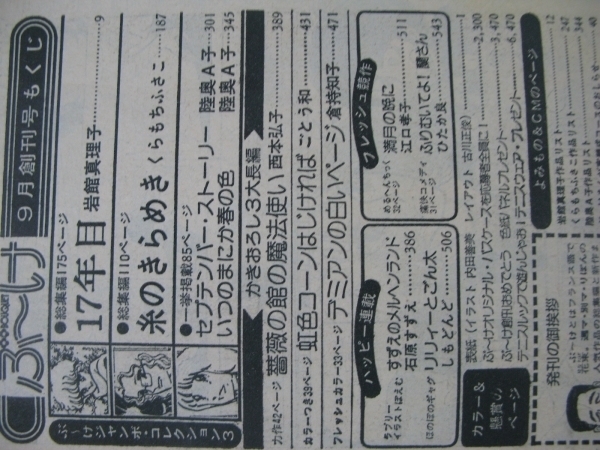 ぶ〜け
9月創刊号もくじ
ぶ〜けジャンボ・コレクション3
●総集編175ページ
17年目 岩館真理子 9
●総集編110ページ
糸のきらめき くらもちふさこ 187
●一挙掲載85ページ
セプテンバー・ストーリー 陸奥A子 301
いつのまにか春の色 陸奥A子 345
かきおろし3大長編
力作42ページ 薔薇の館の魔法使い 西本弘子 389
カラーつき39ページ 虹色コーンはじければ ごとう和 431
フレッシュカラー33ページ デミアンの白いページ 倉持知子 471
ハッピー連載
ラブリーイラストぽえむ すずえのメルヘンランド 386
石原すずえ
ほのぼのギャグ リリィーとごん太 506
しもどんど
フレッシュ競作
めるへんちっく32ページ 満月の晩に 511
江口孝子
痛快コメディ31ページ ふりむいてよ!蘭さん 543
ひたか良
カラー&懸賞のページ
表紙(イラスト 内田善美 レイアウト 古川正俊) 1
ぶ〜けオリジナル・パスケースを応募者全員に! 2,300
ぶ〜け創刊おめでとう 色紙パネルプレゼント 3,470
テニスルックで夏がんじゃお!テニスウェア・プレゼント 6,470
よみもの&CMのページ
12
岩館真理子作品リスト 247
くらもちふさこ作品リスト 344
40
発刊の御挨拶
ぶ〜けとはフランス語で
花束。週マ・別マ・りぼんの